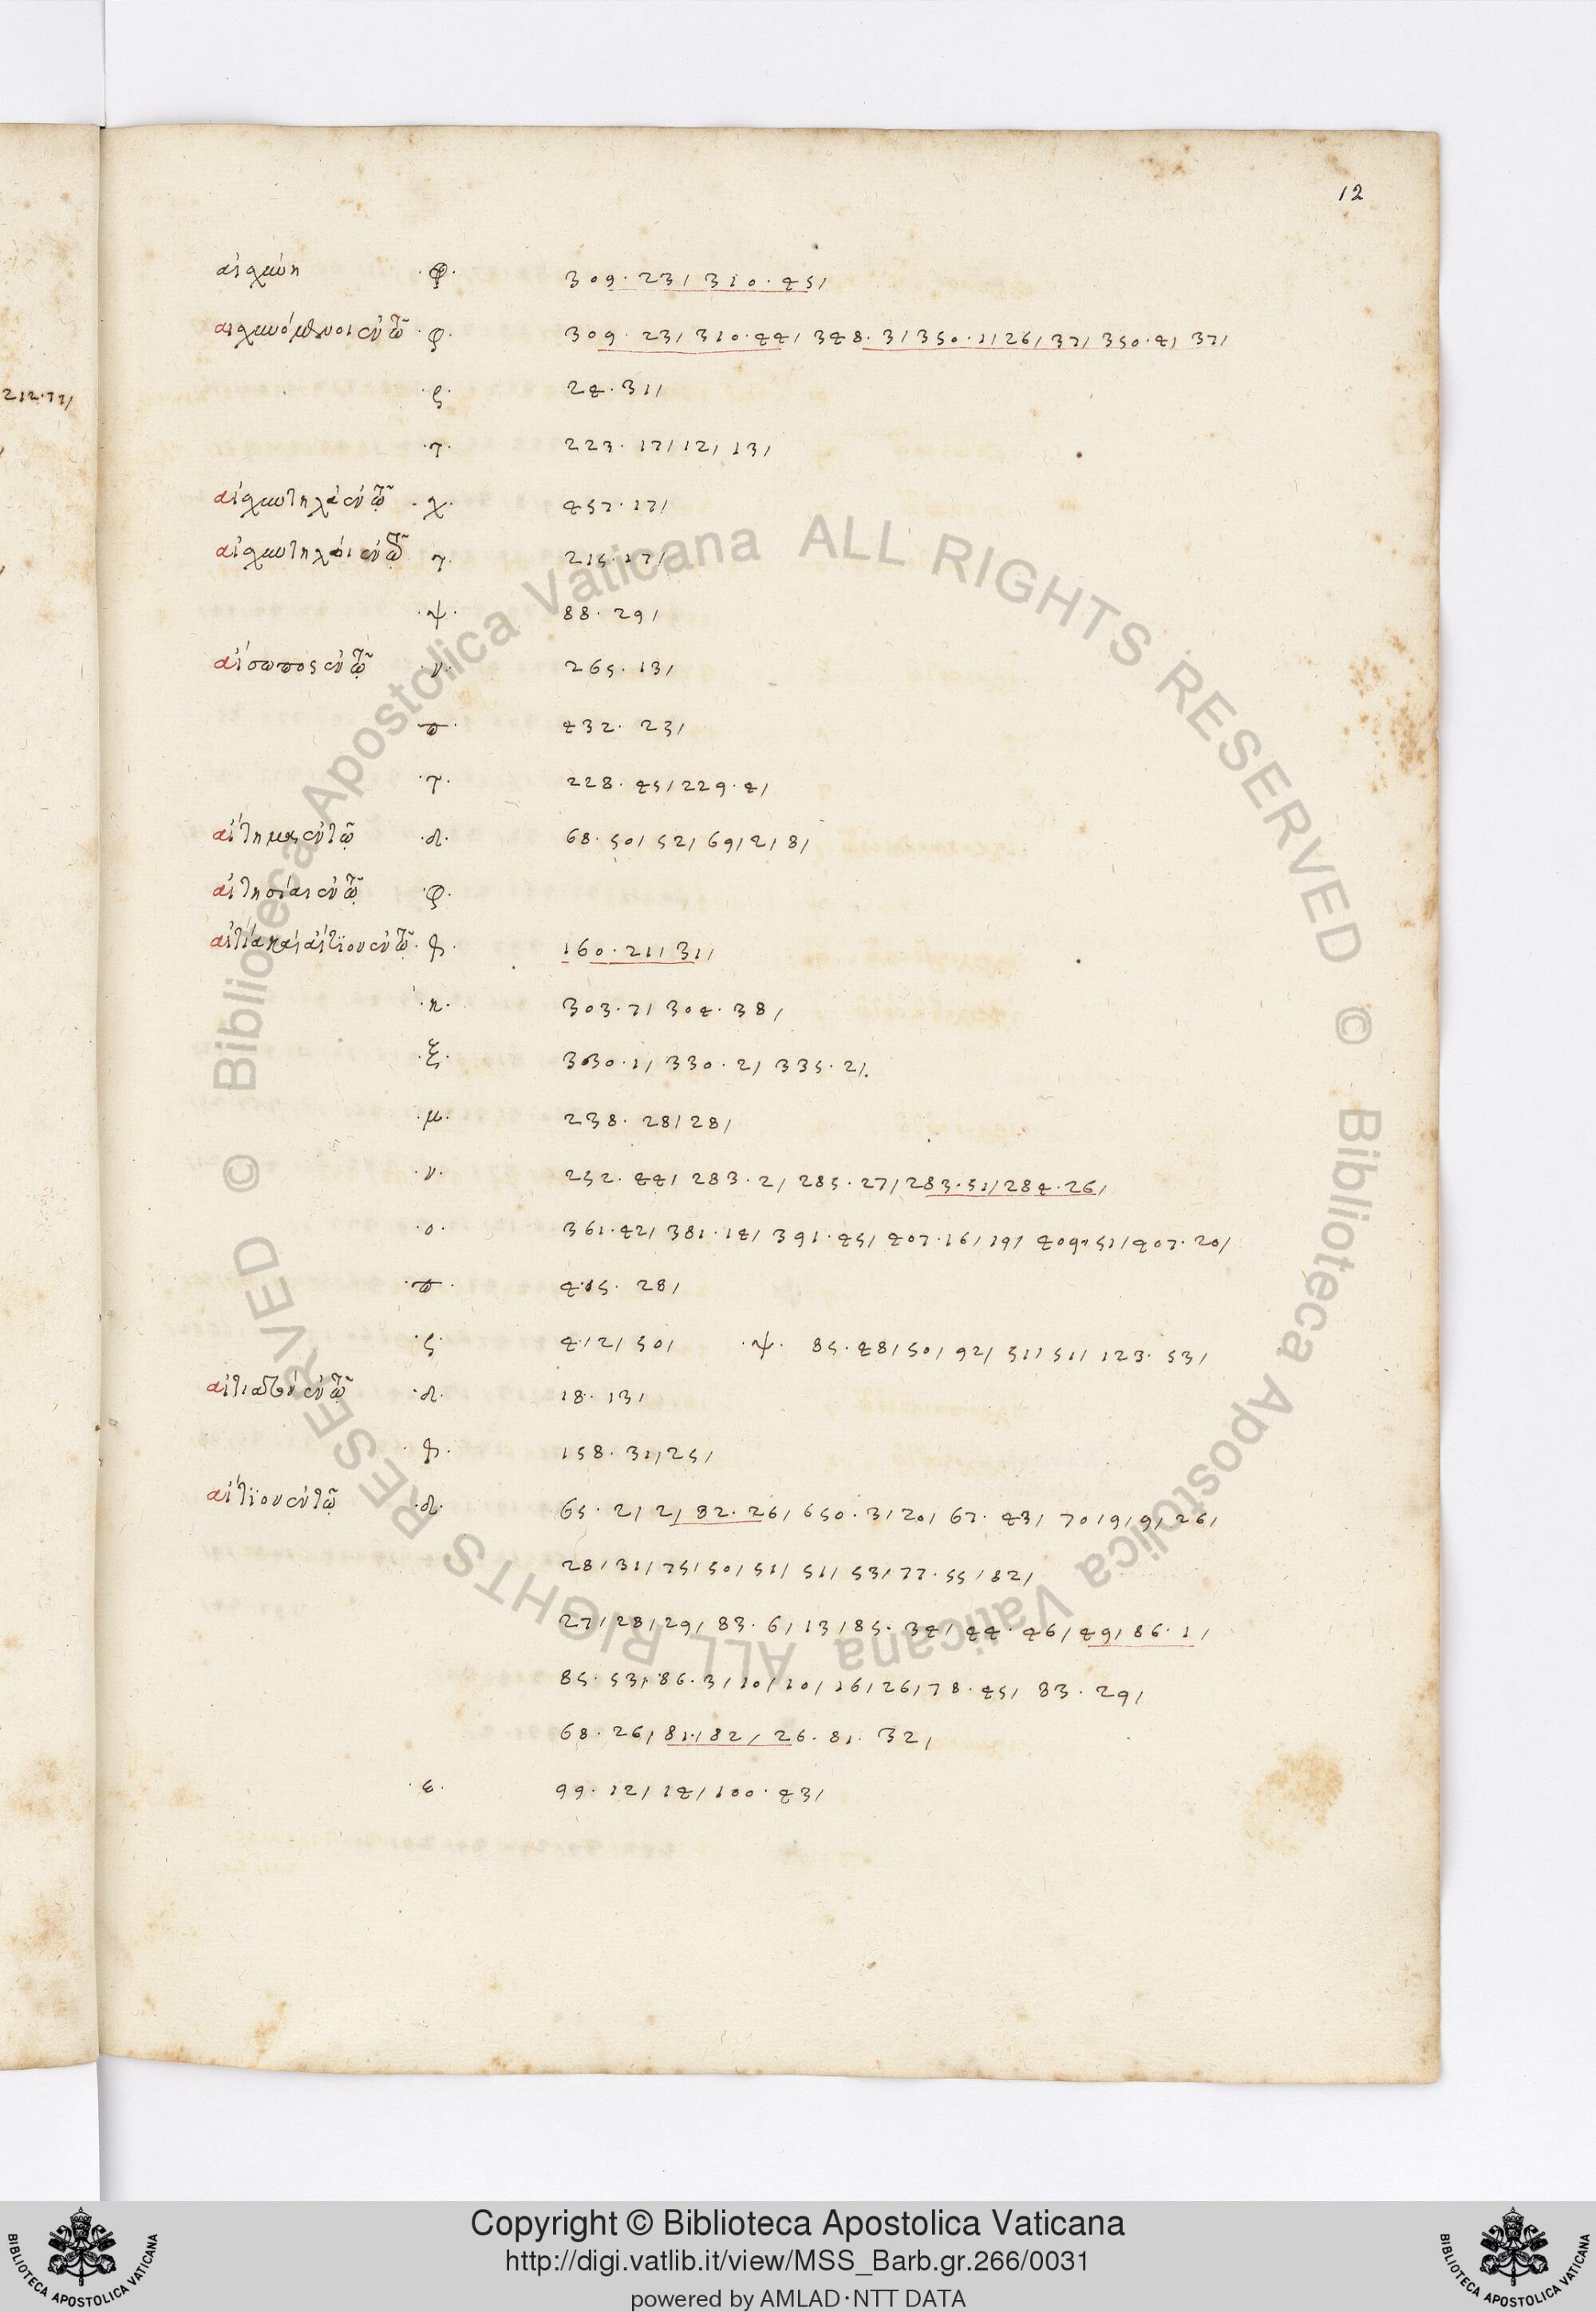 12
αἰσχύνη ·φ· 309·23/ 310·45/
αἰσχυνόμενοι ἐν τῷ ·φ· 309·23/ 310·44/ 348·3/ 350·1/ 26/ 37/ 350·4/ 37/
·ς· 24·31/
·τ· 223·17/ 12/ 13/
·χ· 457·17/
τ· 215·17/
·ψ· 88·29/
αἴσωπος ἐν τῷ ·ν· 265·13/
π· 432·23/
·τ· 228·45/ 229·4/
212·77/
αἴτημα ἐν τῷ ·δ· 68·50/ 52/ 69/ 2/ 8/
αἰτησίαι ἐν τῷ ·φ·
αἰτία καὶ αἴτιον ἐν τῷ 160·21/ 31/
·κ· 303·7/ 304·38/
·ξ· 330·1/ 330·2/ 335·2/.
·μ· 238·28/ 28/
·ν· 252·44/ 283·2/ 285·27/ 283·51/ 284·26/
·ο· 361·42/ 381·14/ 391·45/ 407·16/ 19/ 409·51/ 407·20/
·π· 415·28/
·ς· 4/ 2/ 50/ ·ψ· 85·48/ 50/ 92/ 51/ 51/ 123·53/
αἰτιατὸν ἐν τῷ ·δ· 18·13/
158·31/ 25/
αἴτιον ἐν τῷ ·δ· 65·2/ 2/ 82·26/ 650·3/ 20/ 67·43/ 70/ 9/ 9/ 26/
28/ 31/ 75/ 50/ 51/ 51/ 53/ 77·55/ 82/
27/ 28/ 29/ 83·6/ 13/ 85·34/ 44·46/ 49/ 86·1/
85·53/ 86·3/ 10/ 10/ 16/ 26/ 78·45/ 83·29/
68·26/ 81·/ 82/ 26·81·32/
·ε· 99·12/ 14/ 100·43/
© Biblioteca Apostolica Vaticana ALL RIGHTS RESERVED
© Biblioteca Apostolica Vaticana ALL RIGHTS RESERVED
Copyright © Biblioteca Apostolica Vaticana
http://digi.vatlib.it/view/MSS_Barb.gr.266/0031
powered by AMLAD·NTT DATA
BIBLIOTECA APOSTOLICA VATICANA
BIBLIOTECA APOSTOLICA VATICANA